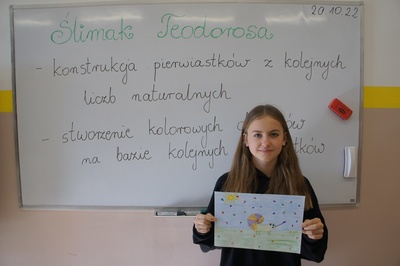 20.10.22
Ślimak Teodorosa
- konstrukcja pierwiastków z kolejnych
liczb naturalnych
- stworzenie kolorowych
na bazie kolejnych